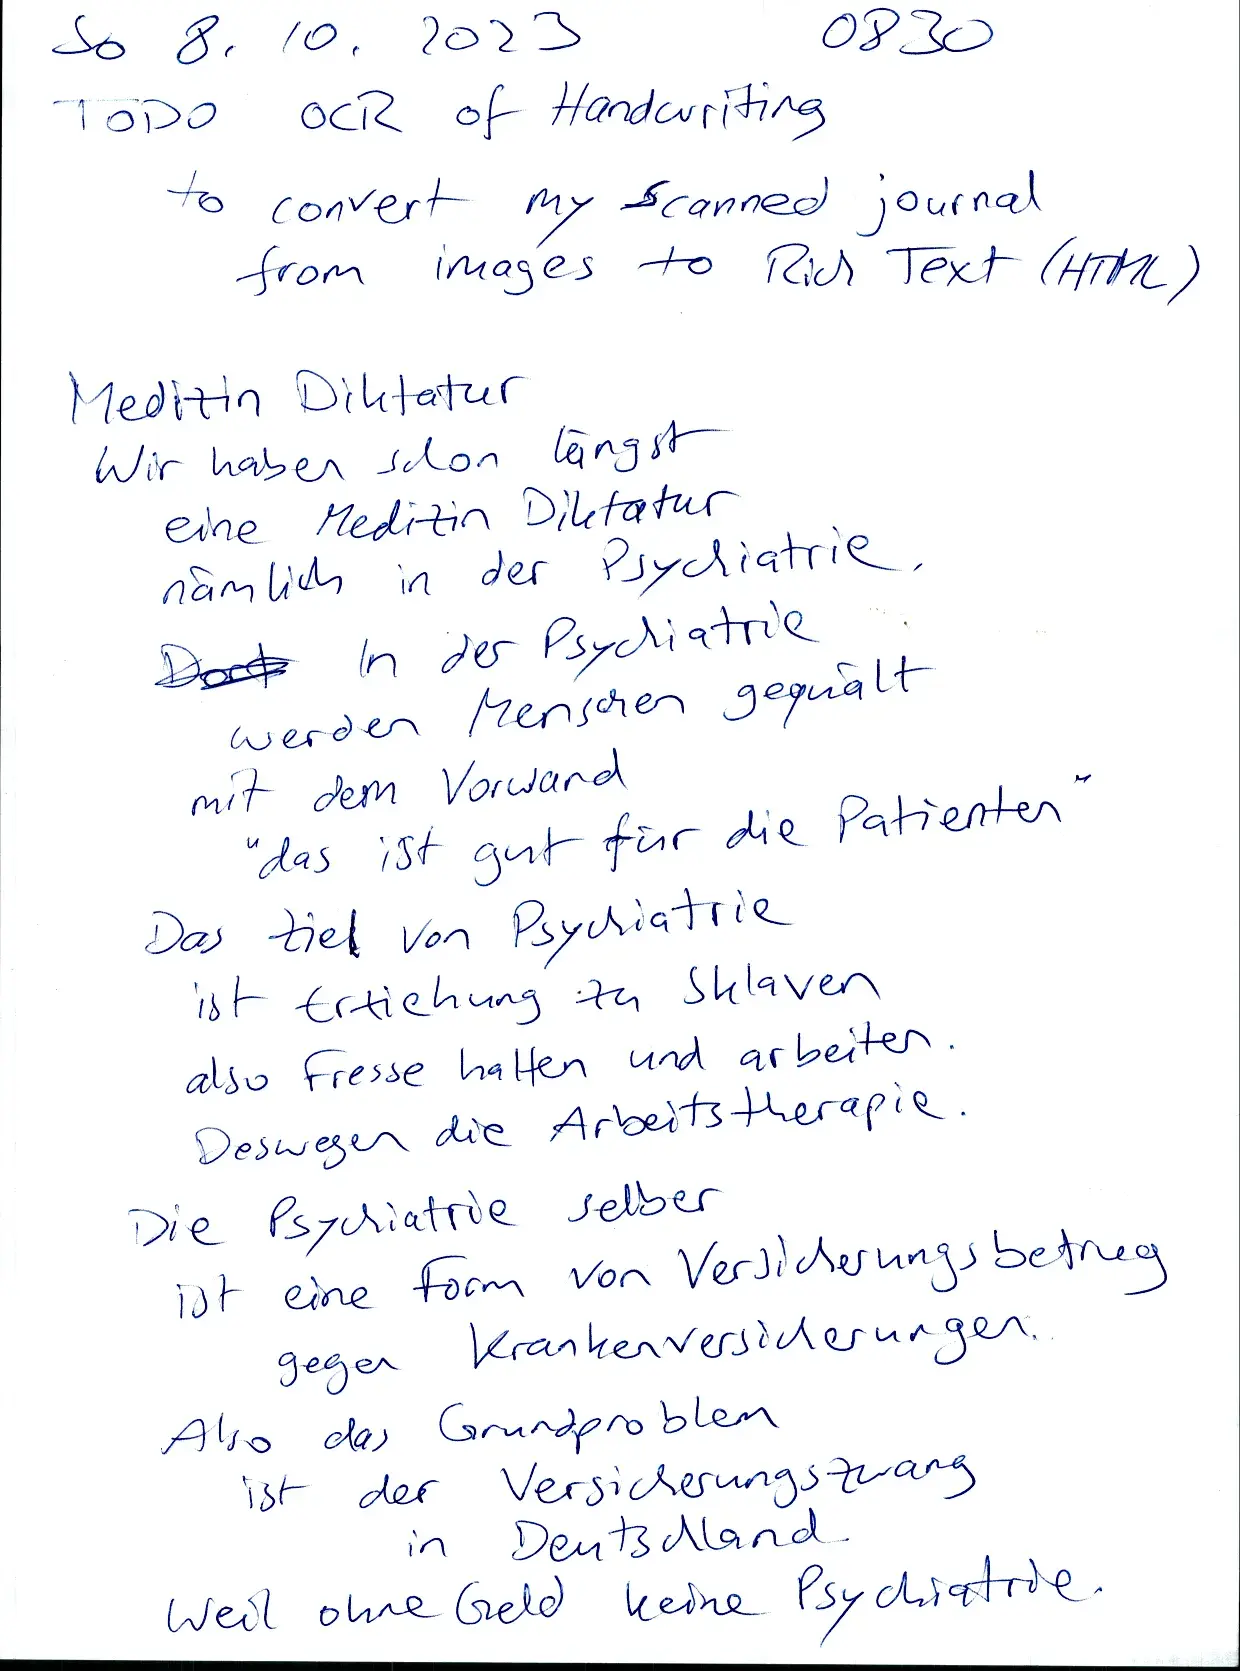 So 8. 10. 2023 0830
TODO OCR of Handwriting
to convert my scanned journal
from images to Rich Text (HTML)
Medizin Diktatur
Wir haben schon längst
eine Medizin Diktatur
nämlich in der Psychiatrie.
Dort In der Psychiatrie
werden Menschen gequält
mit dem Vorwand
"das ist gut für die Patienten"
Das Ziel von Psychiatrie
ist Erziehung zu Sklaven
also Fresse halten und arbeiten.
Deswegen die Arbeitstherapie.
Die Psychiatrie selber
ist eine Form von Versicherungsbetrug
gegen Krankenversicherungen.
Also das Grundproblem
ist der Versicherungszwang
in Deutschland
Weil ohne Geld keine Psychiatrie.